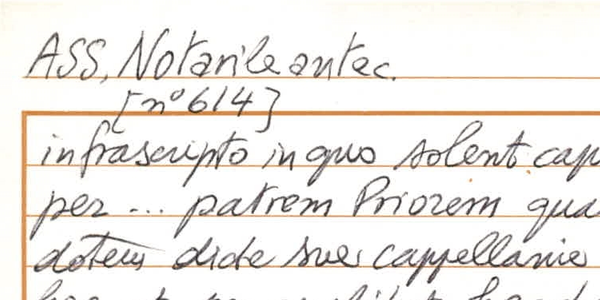 ASS, Notarile antec.
[n° 614]
infrascripto in quo solent cap
per ... patrem Priorem qua
dotem dicte sue cappellanie